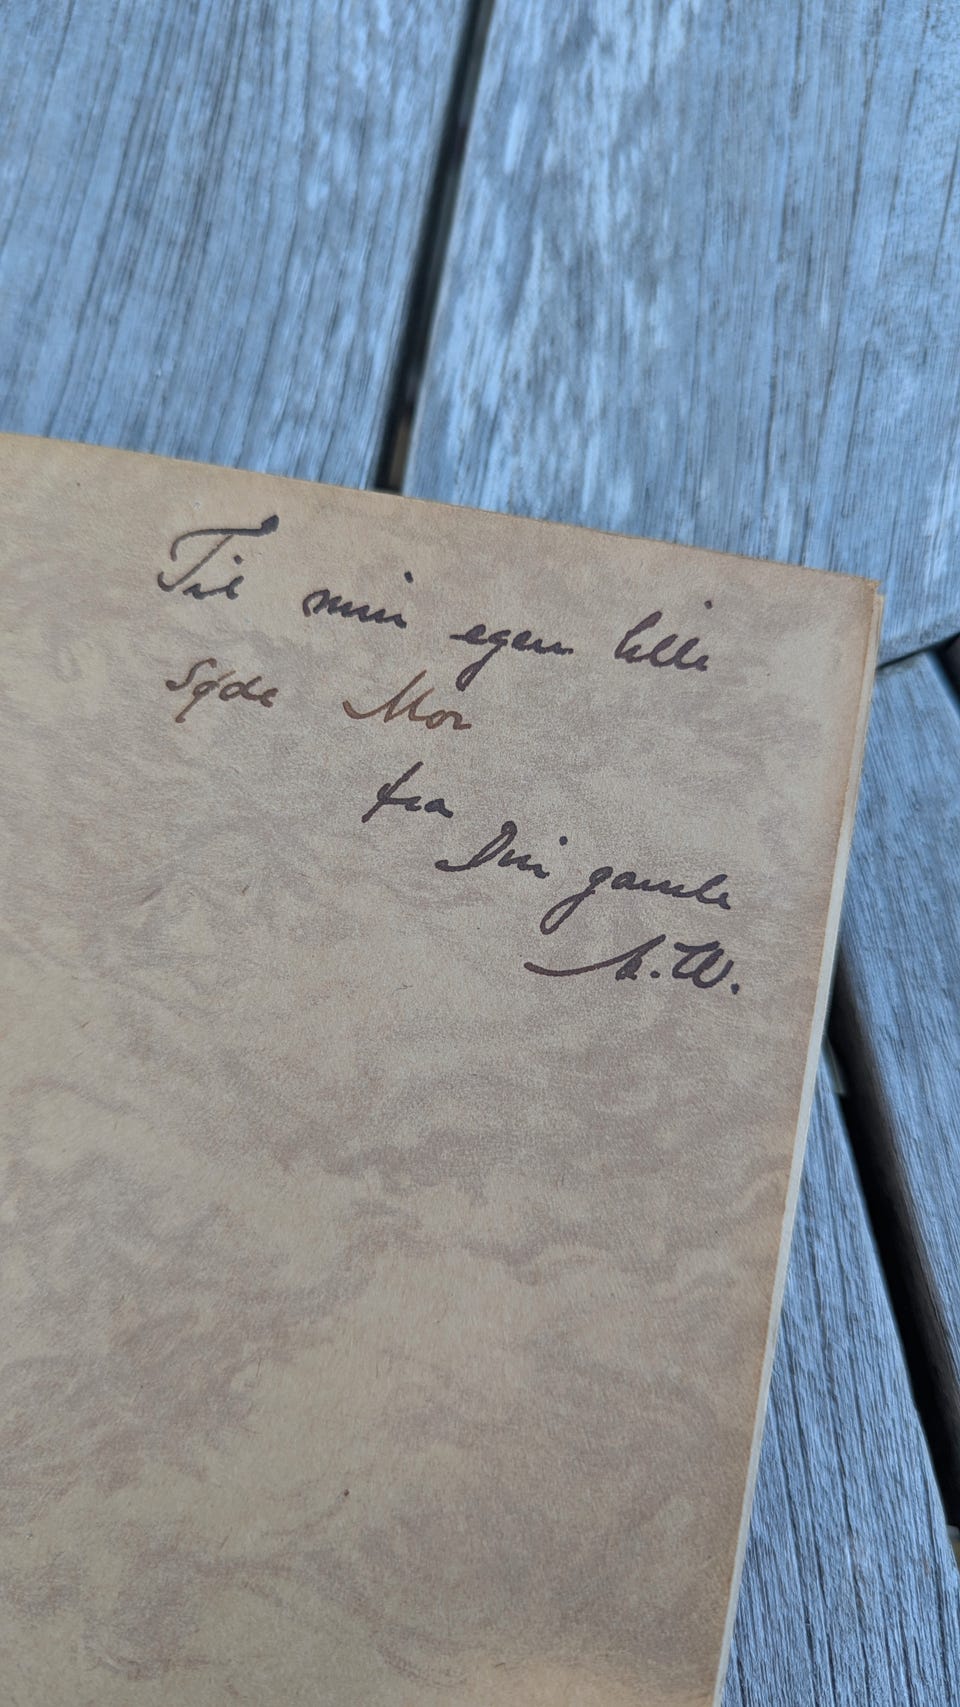 Til min egen lille
Søde Mor
fra
Din gamle
A.W.